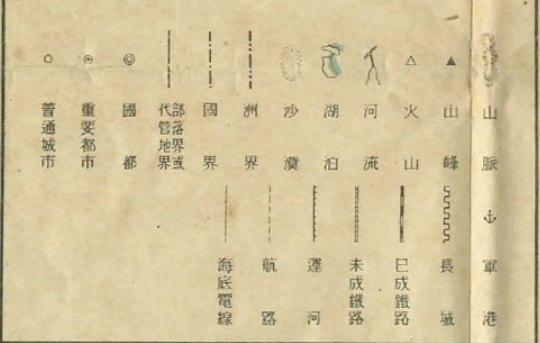 山脈
山峰
火山
河流
湖泊
沙漠
洲界
國界
部落界或代管地界
國都
重要都市
普通城市
軍港
長城
已成鐵路
未成鐵路
運河
航路
海底電線